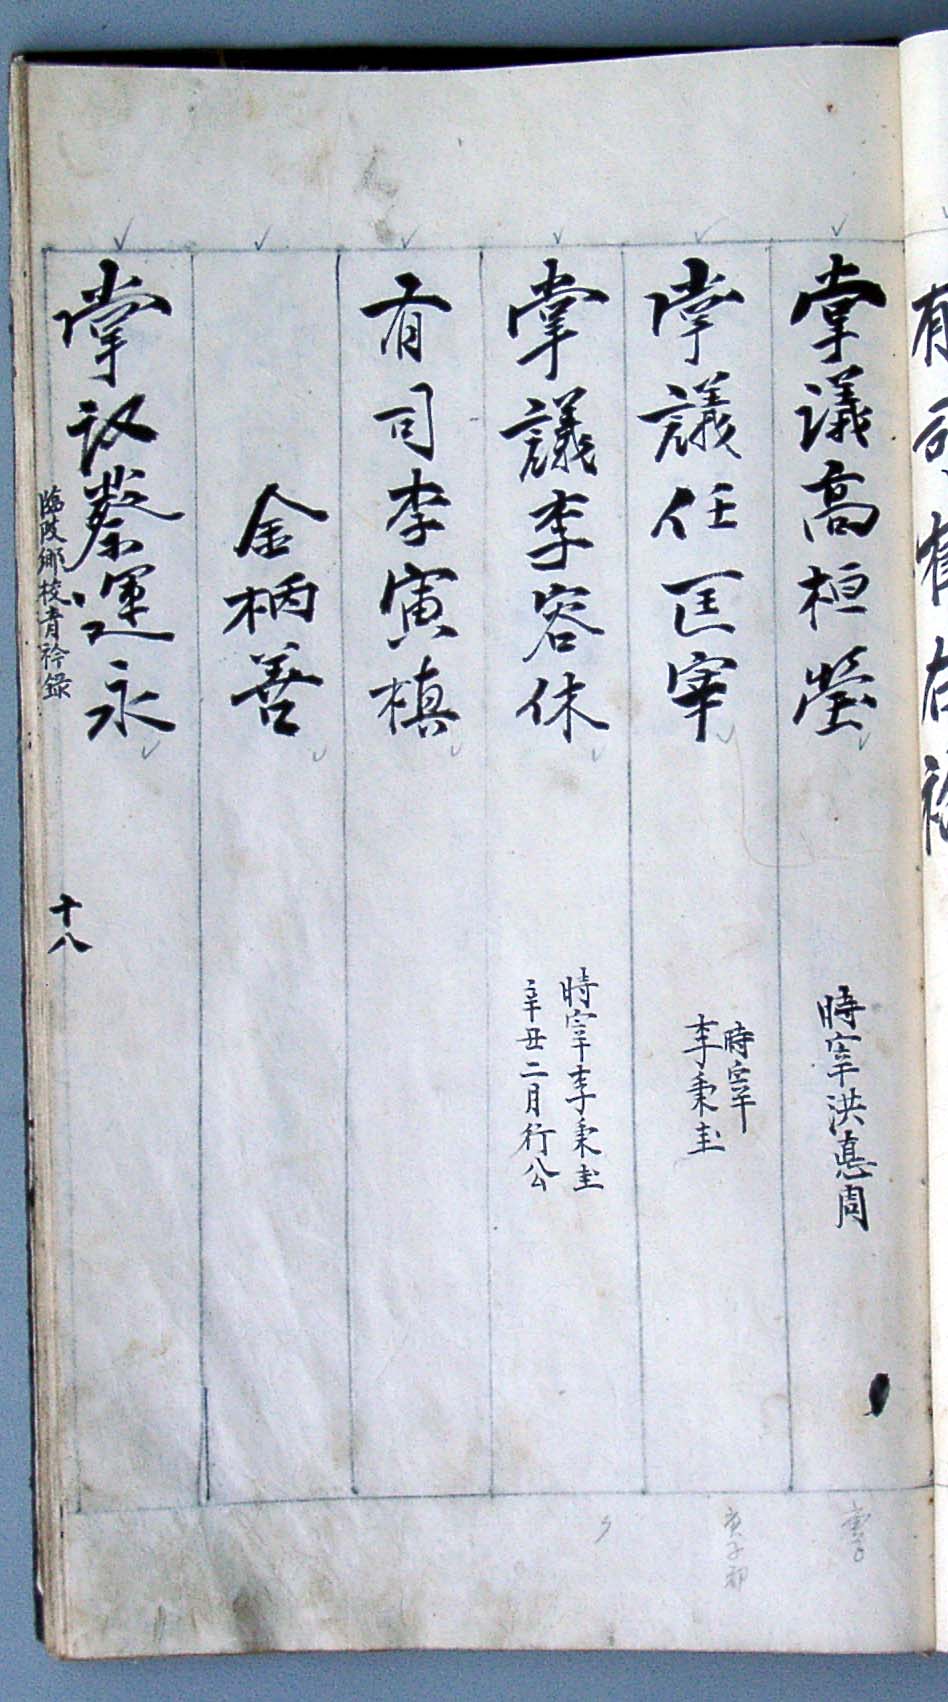 掌議高桓瑩
時宰洪悳周
掌議任匡宰
時宰
李秉圭
掌議李容休
時宰李秉圭
辛丑二月行公
有司李寅槙
金柄善
掌议蔡運永
臨陂鄉校青衿錄
十八
庚子